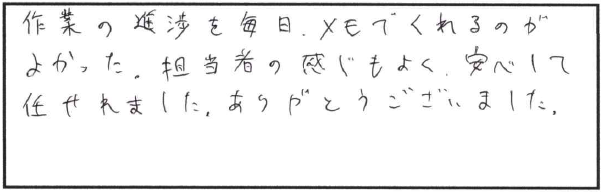 作業の進渉を毎日、メモでくれるのが
よかった。担当者の感じもよく、安心して
任せれました。ありがとうございました。